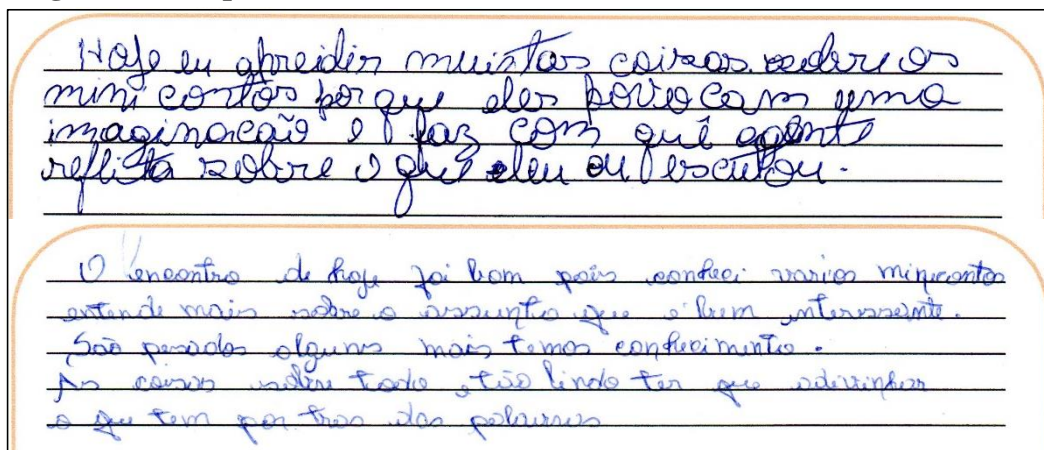 Hoje eu apreidir muintas coisas sobre os
mini contos por que eles povocam uma
imaginacão e faz com quê agente
reflita sobre o quê leu ou escutou.
O encontro de hoje foi bom pois conheci varios minicontos
entende mais sobre o assunto que é bem interessante.
São pesados alguns mais temos conhecimento.
As coisas sobre tudo é tão lindo ter que adivinhar
o que tem por tras das palavras